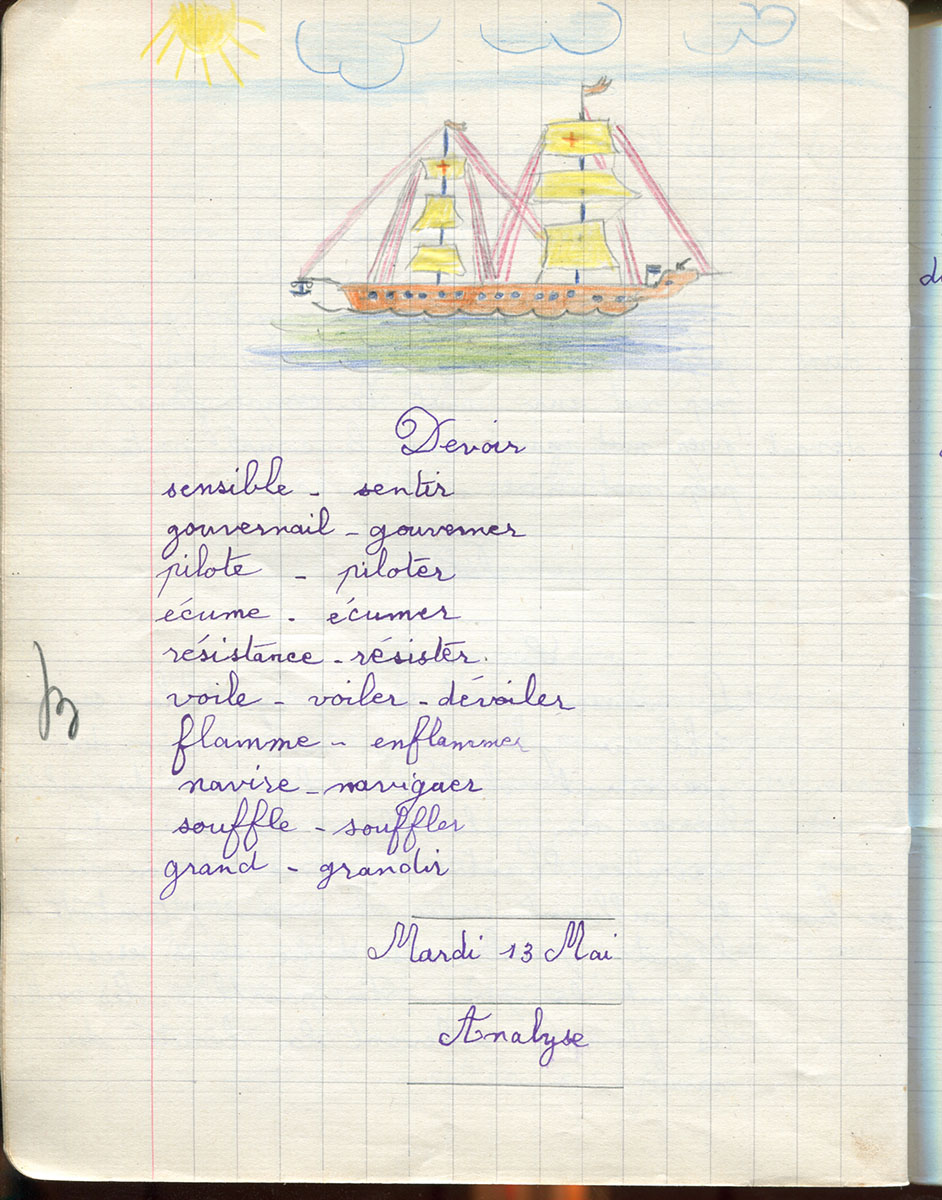 Devoir
sensible - sentir
gouvernail - gouverner
pilote - piloter
écume - écumer
résistance - résister.
voile - voiler - dévoiler
flamme - enflammer
navire - naviguer
souffle - souffler
grand - grandir
Mardi 13 Mai
Analyse